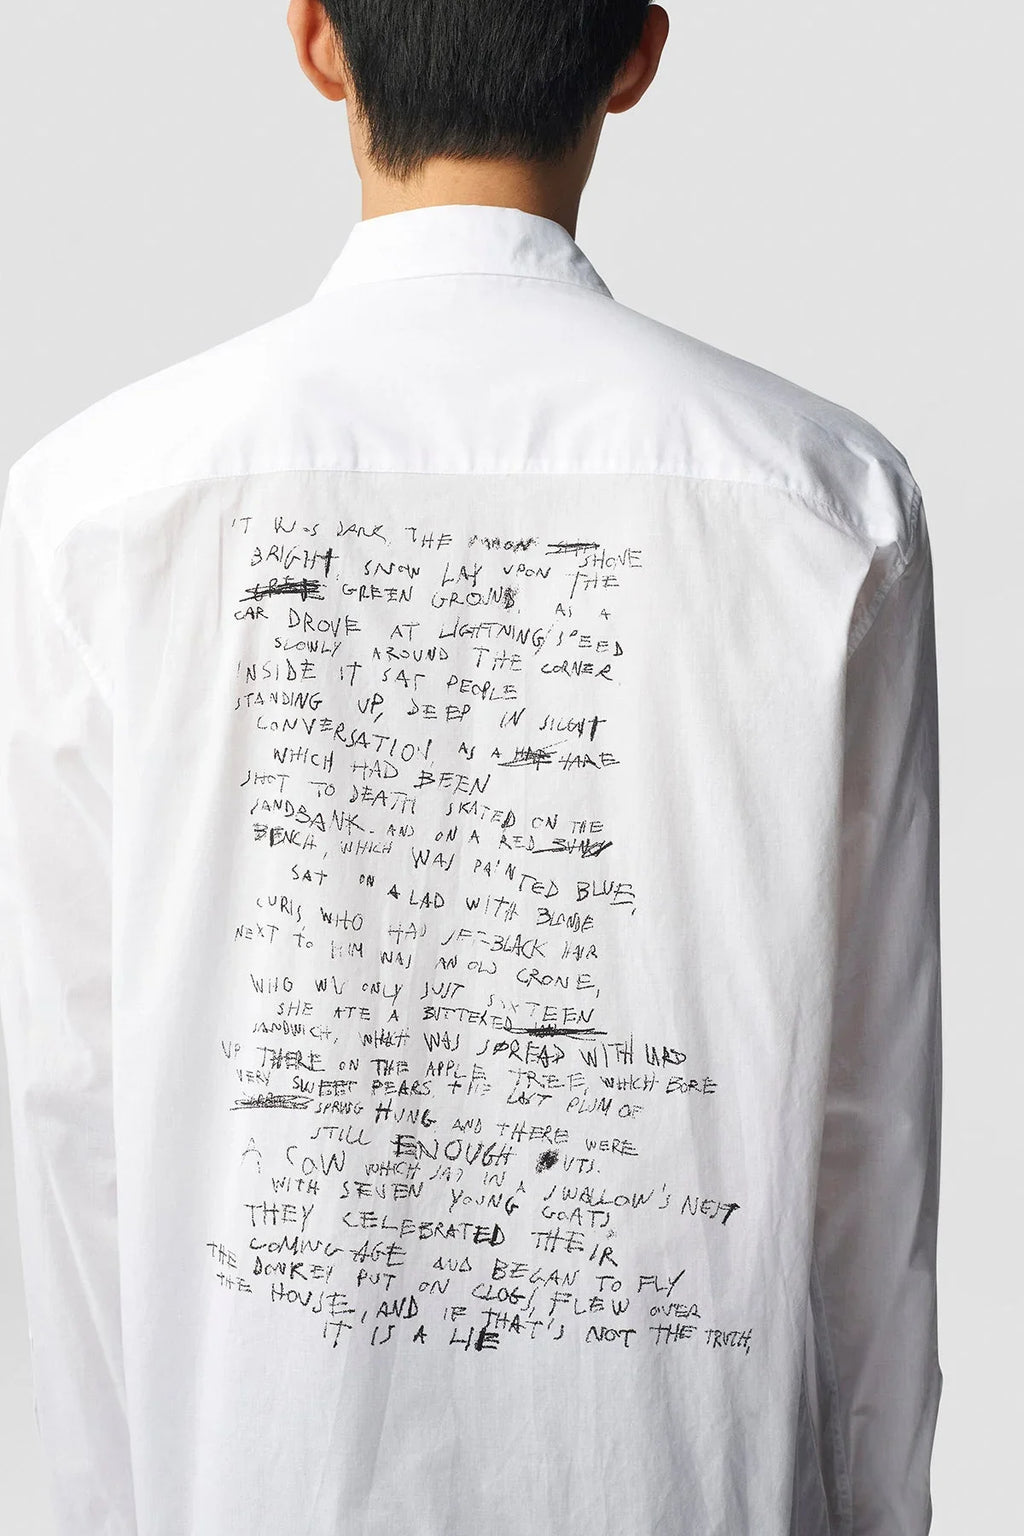 IT WAS DARK, THE MOON SHONE
BRIGHT, SNOW LAY UPON THE
GREEN GROUND, AS A
CAR DROVE AT LIGHTNING SPEED
SLOWLY AROUND THE CORNER.
INSIDE IT SAT PEOPLE
STANDING UP, DEEP IN SILENT
CONVERSATION, AS A HARE
WHICH HAD BEEN
SHOT TO DEATH SKATED ON THE
SANDBANK. AND ON A RED
BENCH, WHICH WAS PAINTED BLUE,
SAT ON A LAD WITH BLONDE
CURLS, WHO HAD JET-BLACK HAIR
NEXT TO HIM WAS AN OLD CRONE,
WHO WAS ONLY JUST SIXTEEN
SHE ATE A BUTTERED
SANDWICH, WHICH WAS SPREAD WITH LARD
UP THERE ON THE APPLE TREE, WHICH BORE
VERY SWEET PEARS, THE LAST PLUM OF
SPRING HUNG AND THERE WERE
STILL ENOUGH UTS.
A COW WHICH SAT IN A SWALLOW'S NEST
WITH SEVEN YOUNG GOATS,
THEY CELEBRATED THEIR
COMING AGE AND BEGAN TO FLY
THE DONKEY PUT ON CLOGS, FLEW OVER
THE HOUSE, AND IF THAT'S NOT THE TRUTH,
IT IS A LIE